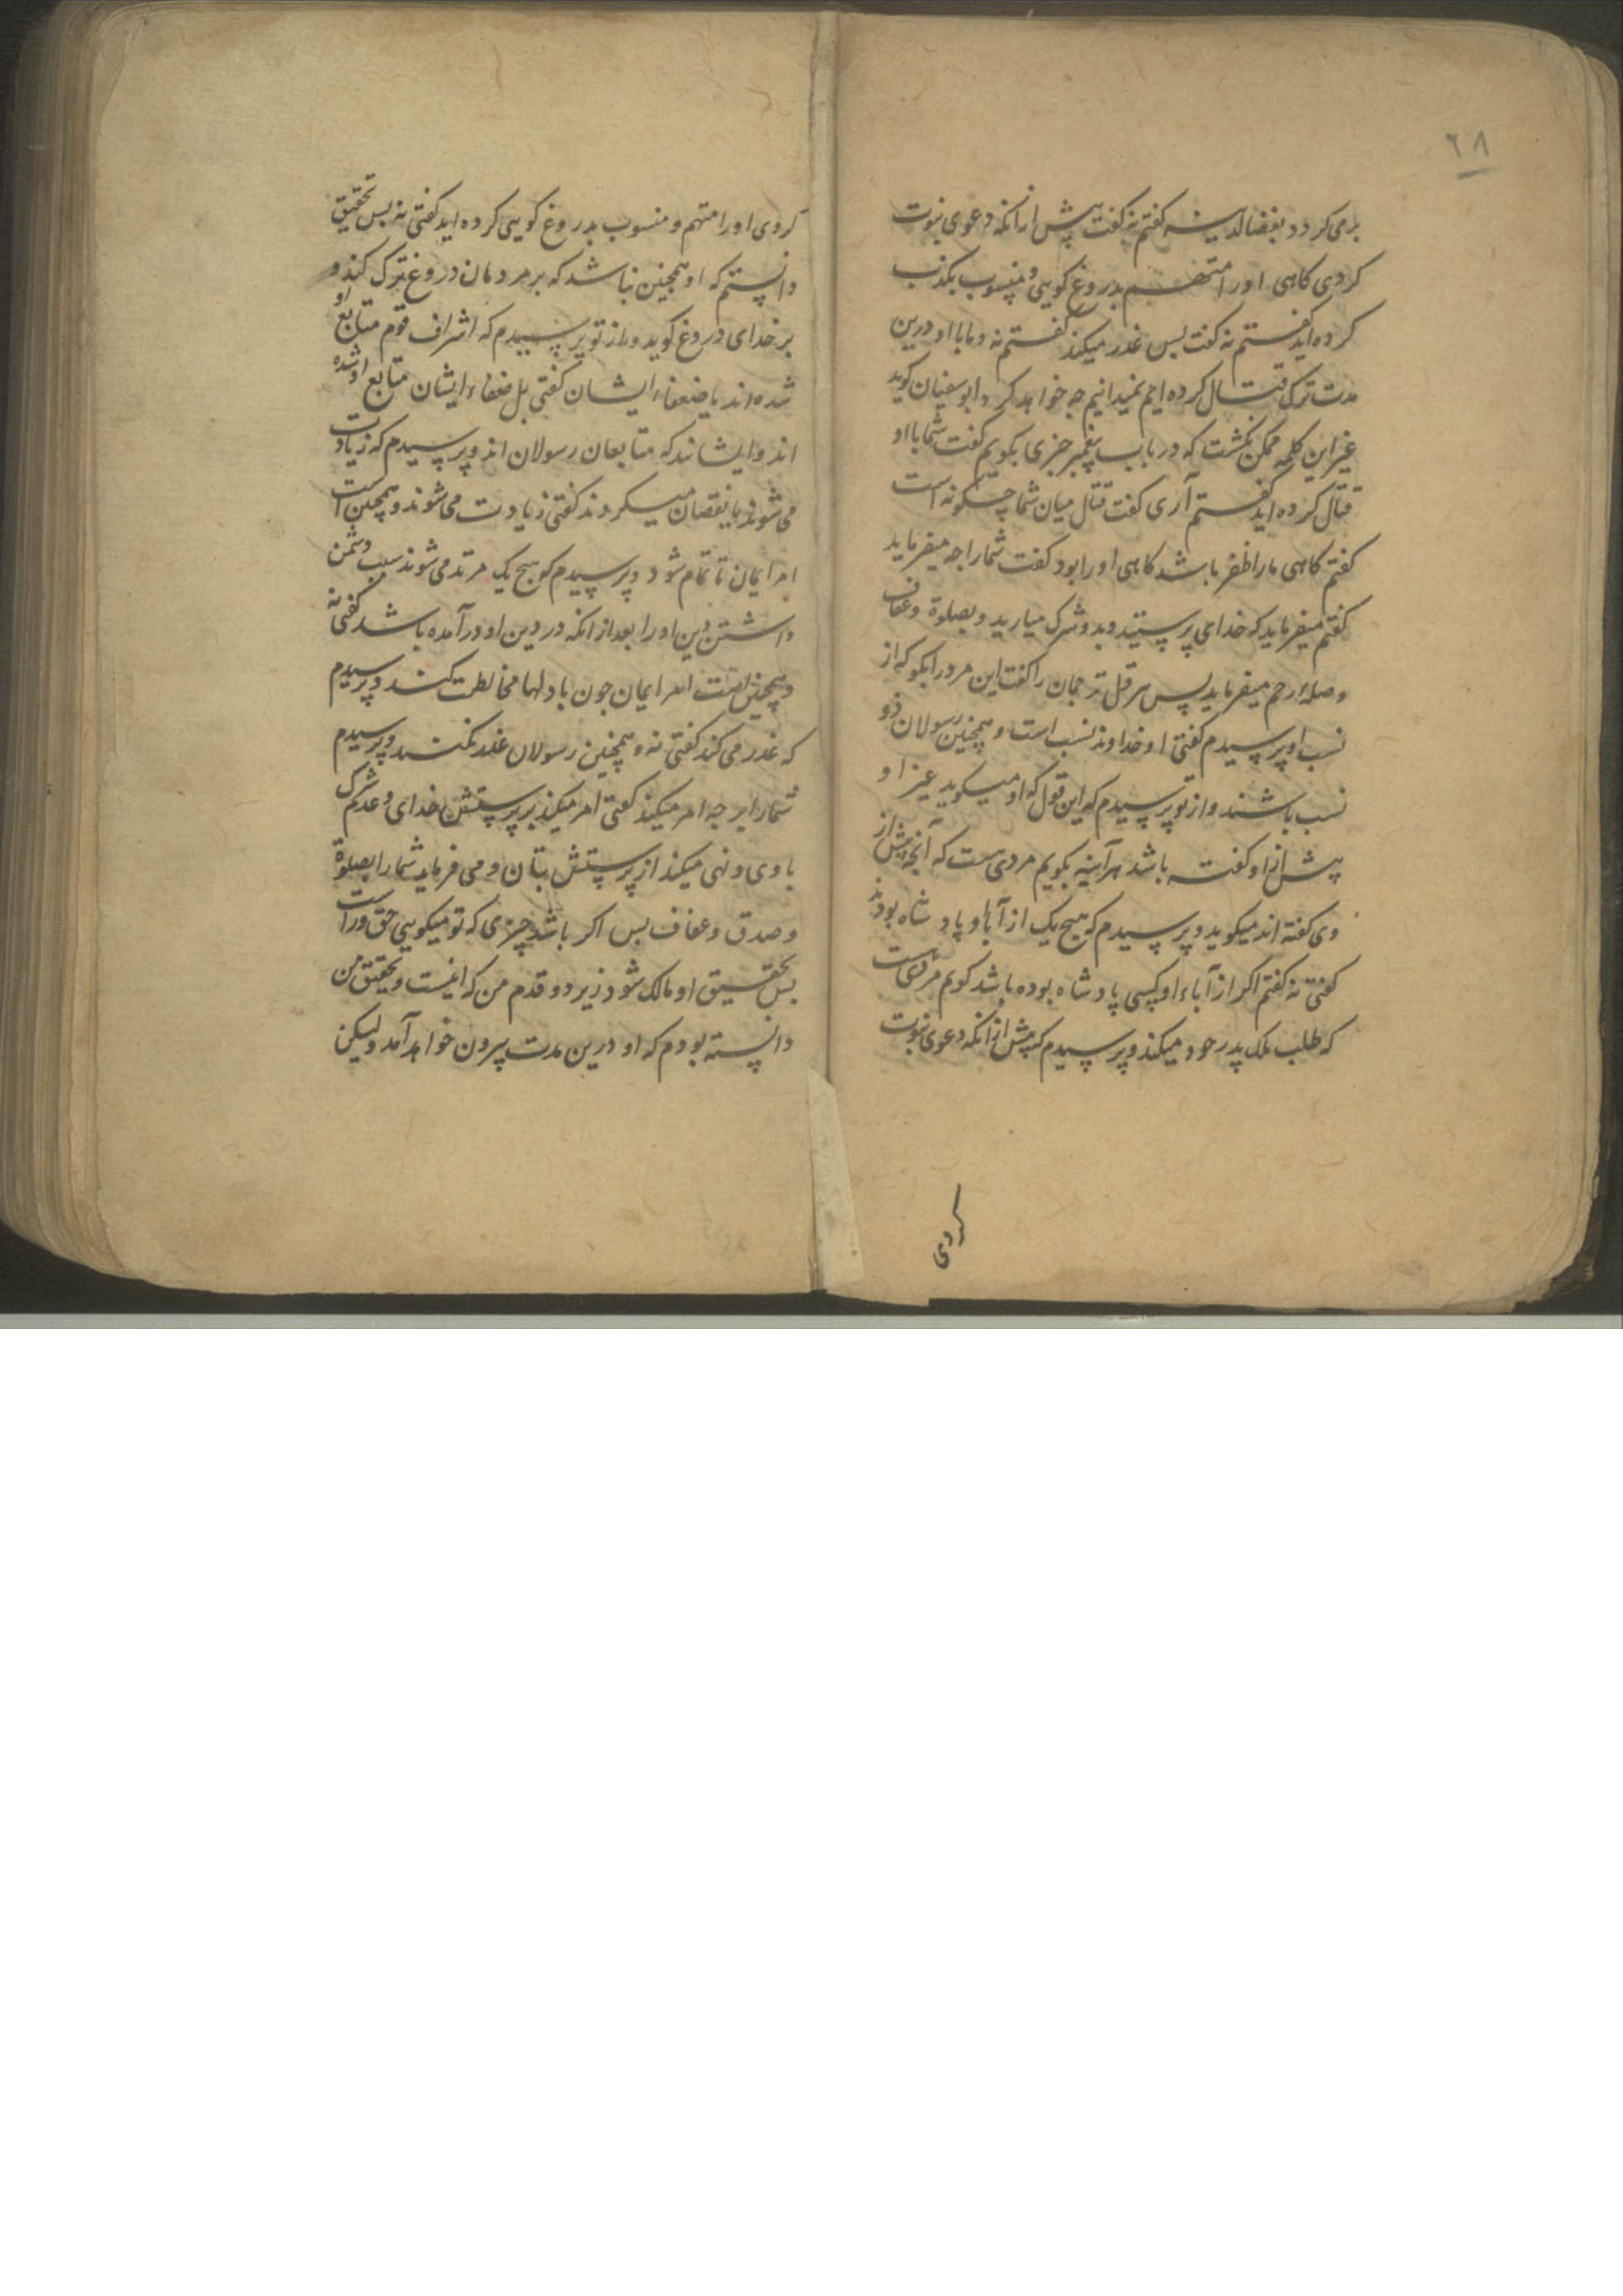 ٦٨
برمی کردد بغضا لدینه کفتم نه کفت پیش ازانکه دعوی نبوت
کردی کاهی اورا متهم بدروغ کویی و منسوب بکذب
کرده اید کفتم نه کفت بس غدر میکند کفتم نه و ما با او درین
مدت ترک قتال کرده ایم نمیدانیم چه خواهد کرد و ابو سفیان کوید
غیر این کلمه ممکن نکشت که در باب پیغمبر چیزی بکویم کفت شما با او
قتال کرده اید کفتم آری کفت قتال میان شما چکونه است
کفتم کاهی ما را ظفر باشد کاهی اورا بود کفت شما را چه میفرماید
کفتم میفرماید که خدای پرستید و بدو شرک میارید و بصلوة و عفاف
و صلهٔ رحم میفرماید پس هرقل ترجمان را کفت این مرد را بکو که از
نسب او پرسیدم کفتی او خداوند نسب است و همچنین رسولان ذو
نسب باشند و از تو پرسیدم که این قول که او میکوید غیر او
پیش از او کفته باشد هر آینه بکویم مردیست که آنچه پیش از
وی کفته اند میکوید و پرسیدم که هیچ یک از آباء او پادشاه بودند
کفتی نه کفتم اکر از آباء او کسی پادشاه بوده باشد کویم مردیست
که طلب ملک پدر خود میکند و پرسیدم که پیش ازانکه دعوی نبوت
کردی
کردی اورا متهم و منسوب بدروغ کویی کرده اید کفتی نه بس تحقیق
دانستم که او همچنین نباشد که بر مردمان دروغ ترک کند و
بر خدای دروغ کوید و از تو پرسیدم که اشراف قوم متابع او
شده اند یا ضعفاء ایشان کفتی بل ضعفاء ایشان متابع او شده
اند و ایشانند که متابعان رسولان اند و پرسیدم که زیادت
می شوند یا نقصان میکردند کفتی زیادت می شوند و همچنین است
امر ایمان تا تمام شود و پرسیدم که هیچ یک مرتد می شوند سبب دشمن
داشتن دین اورا بعد ازانکه در دین او در آمده باشد کفتی نه
و همچنین است امر ایمان چون با دلها مخالطت کند و پرسیدم
که غدر می کند کفتی نه و همچنین رسولان غدر نکنند و پرسیدم
شما را بر چه امر میکند کفتی امر میکند بر پرستش خدای و عدم شرک
با وی و نهی میکند از پرستش بتان و می فرماید شما را بصلوة
و صدق و عفاف بس اکر باشد چیزی که تو میکویی حق و راست
بس بتحقیق او مالک شود زیر دو قدم من که اینست و بتحقیق من
دانسته بودم که او درین مدت بیرون خواهد آمد و لیکن